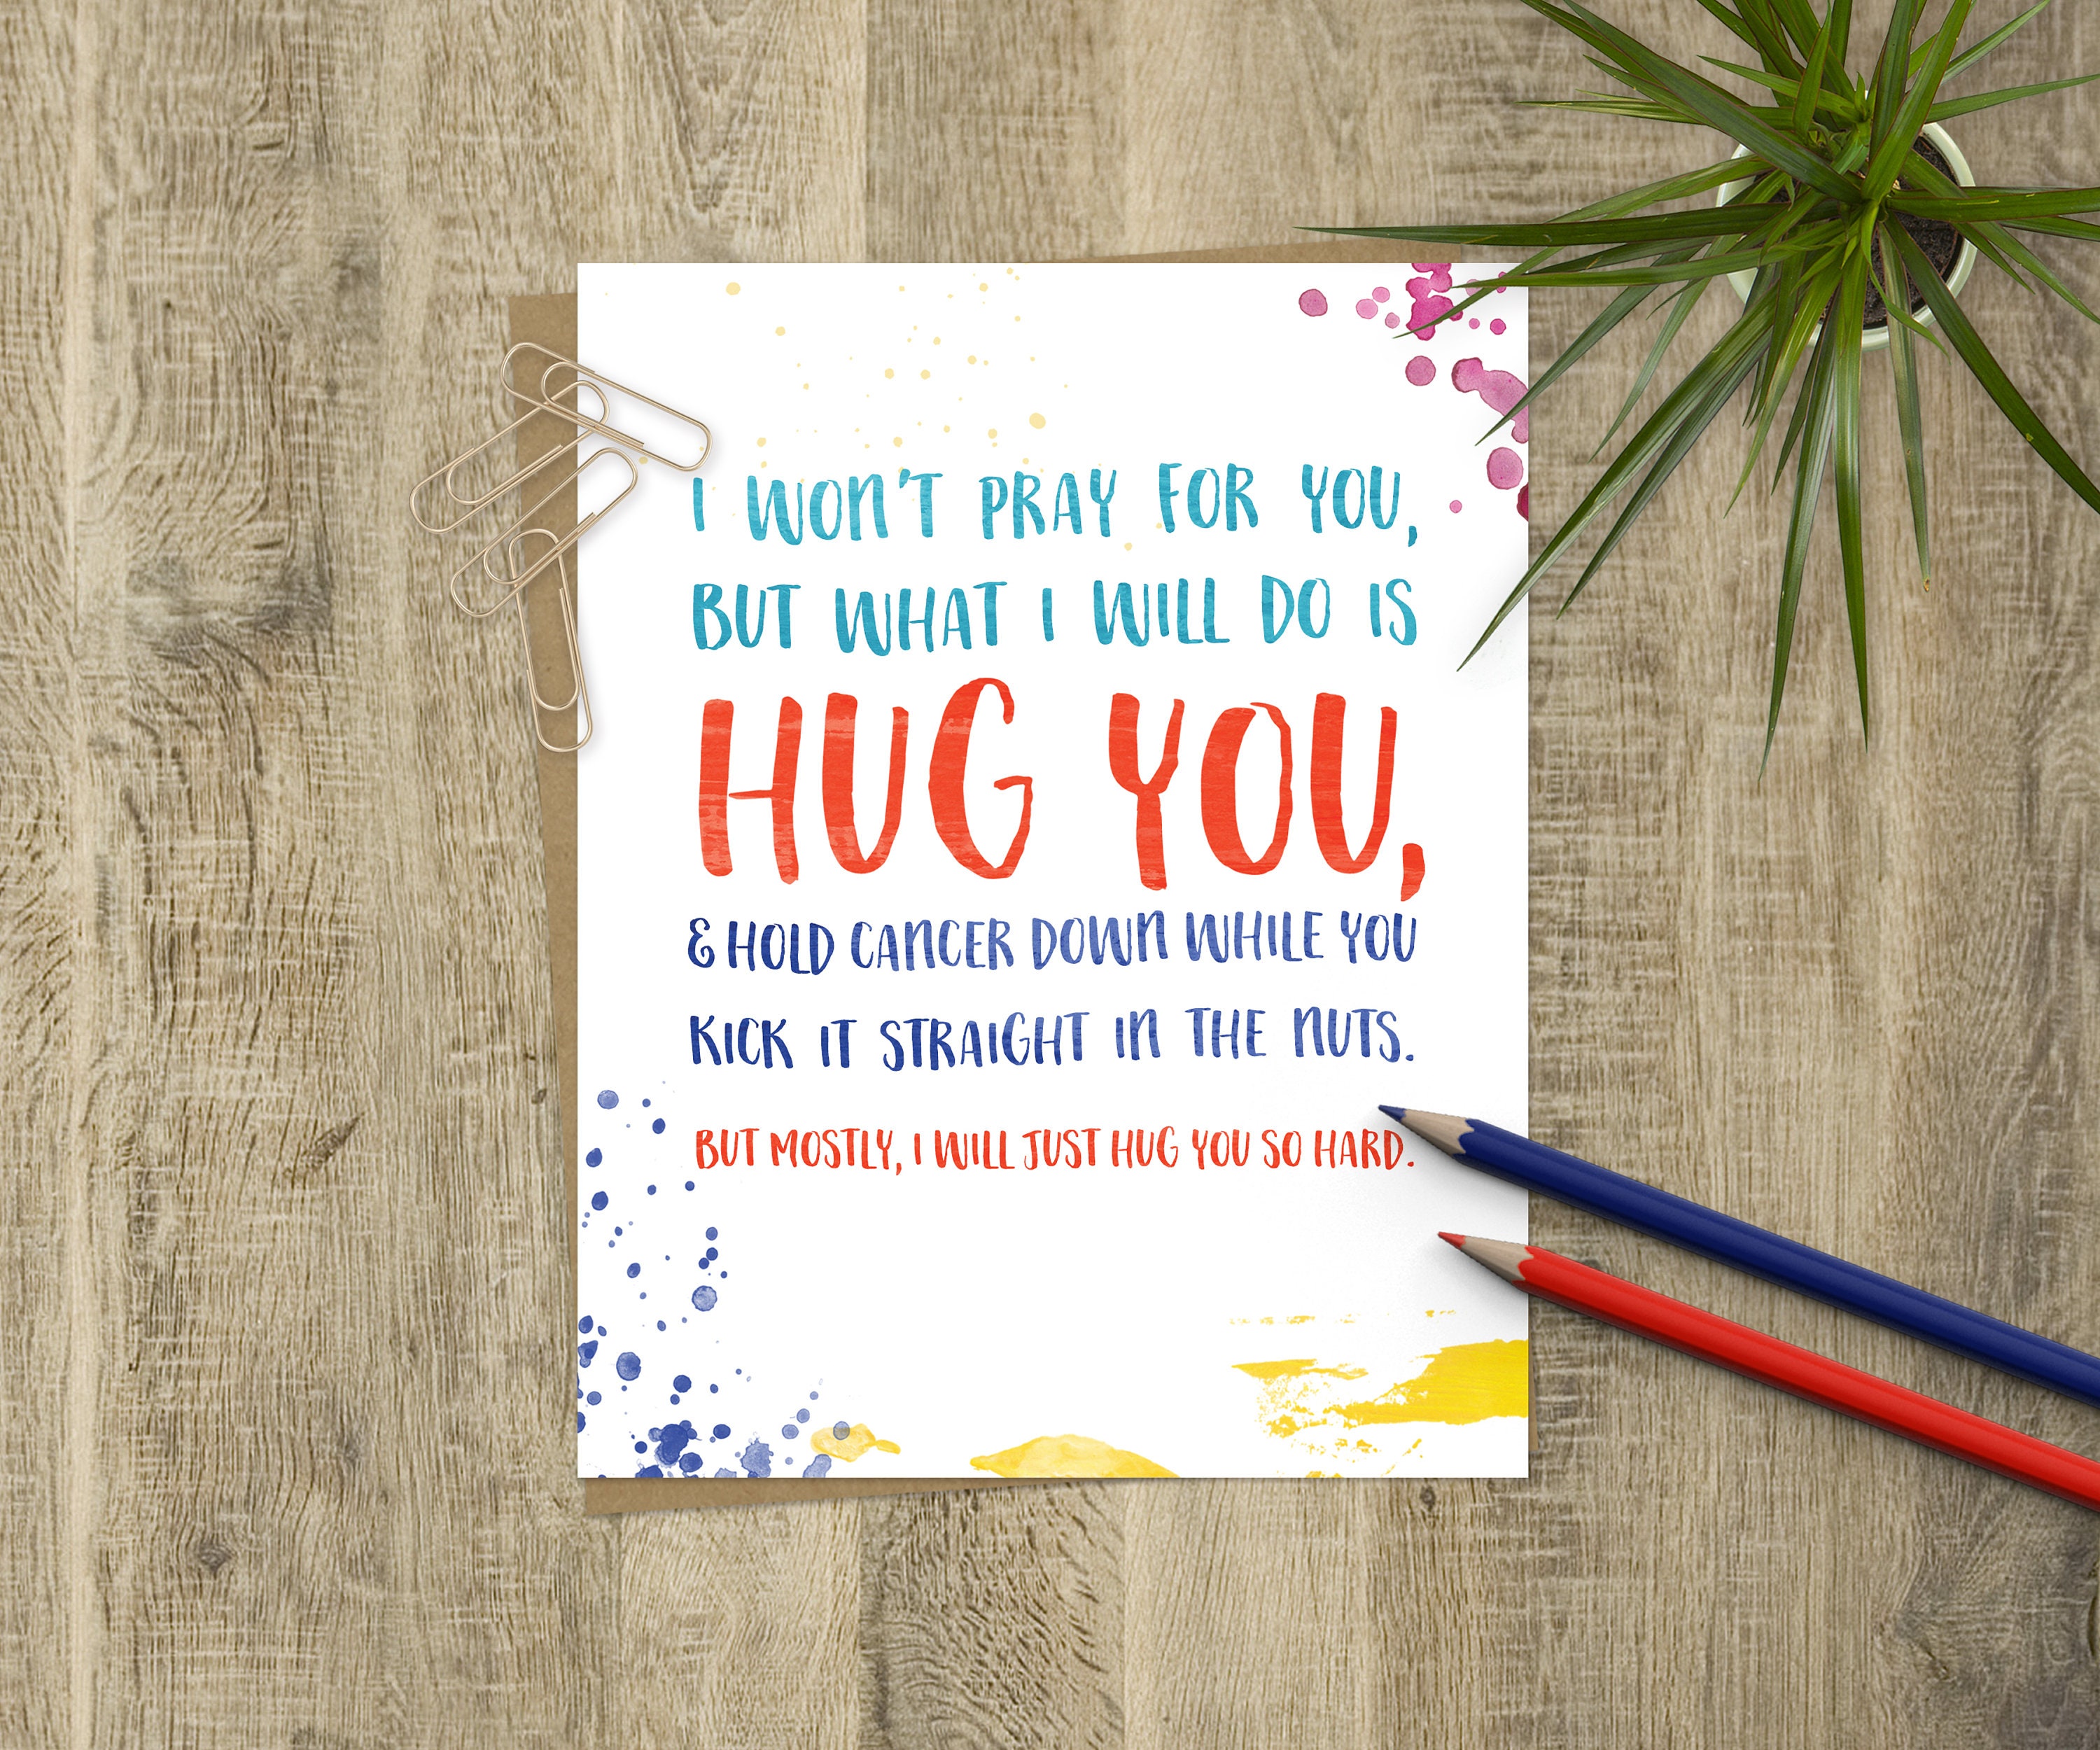 I WON'T PRAY FOR YOU,
BUT WHAT I WILL DO IS
HUG YOU,
& HOLD CANCER DOWN WHILE YOU
KICK IT STRAIGHT IN THE NUTS.
BUT MOSTLY, I WILL JUST HUG YOU SO HARD.